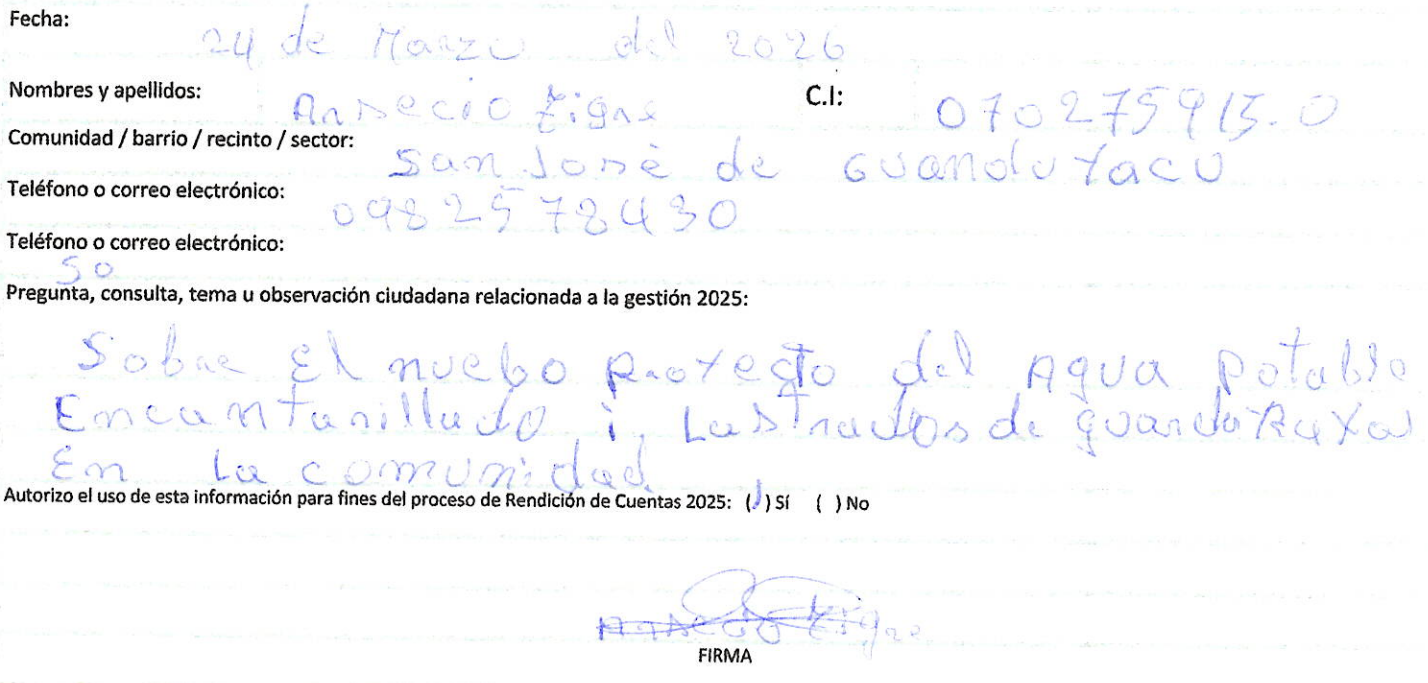 Fecha: 24 de Marzo del 2026
Nombres y apellidos: Arsecio Zigne C.I: 070275915-0
Comunidad / barrio / recinto / sector: San José de Guandulyacu
Teléfono o correo electrónico: 0982578430
Teléfono o correo electrónico:
50
Pregunta, consulta, tema u observación ciudadana relacionada a la gestión 2025:
Sobre El nuebo Proyecto del Agua Potable
Encantarillado, i, Lastrados de
En La comunidad
Autorizo el uso de esta información para fines del proceso de Rendición de Cuentas 2025: (/) Sí ( ) No
FIRMA